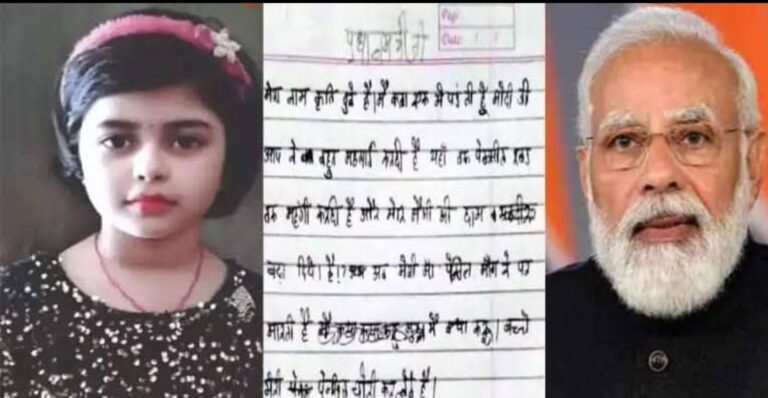 Page
Date / /
प्रधानमंत्री जी
मेरा नाम कृति दुबे है। मैं कक्षा एक में पढ़ती हूँ मोदी जी
आप ने बहुत महगाई करदी है यहाँ तक पेनसील रबड़
तक महंगी करदी है और मेरि मैगी की दाम
बढ़ा दिये है। अब मेरी माँ पेंसिल मांगने पर
मारती है मैं क्या करू। बच्चे
मेरी पेनसिल चोरी कर लेते है।